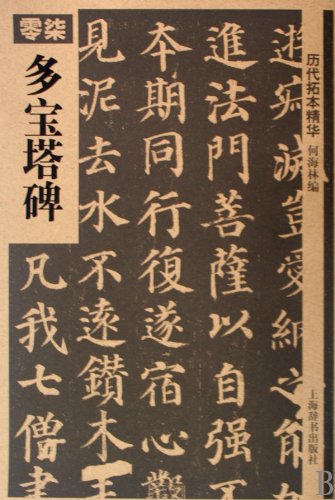 零柒
多宝塔碑
历代拓本精华
何海林编
滅豈愛納之
進法門菩薩以自强不
本期同行復遂宿心
見泥去水不遠鑽木
凡我七僧
上海辞书出版社